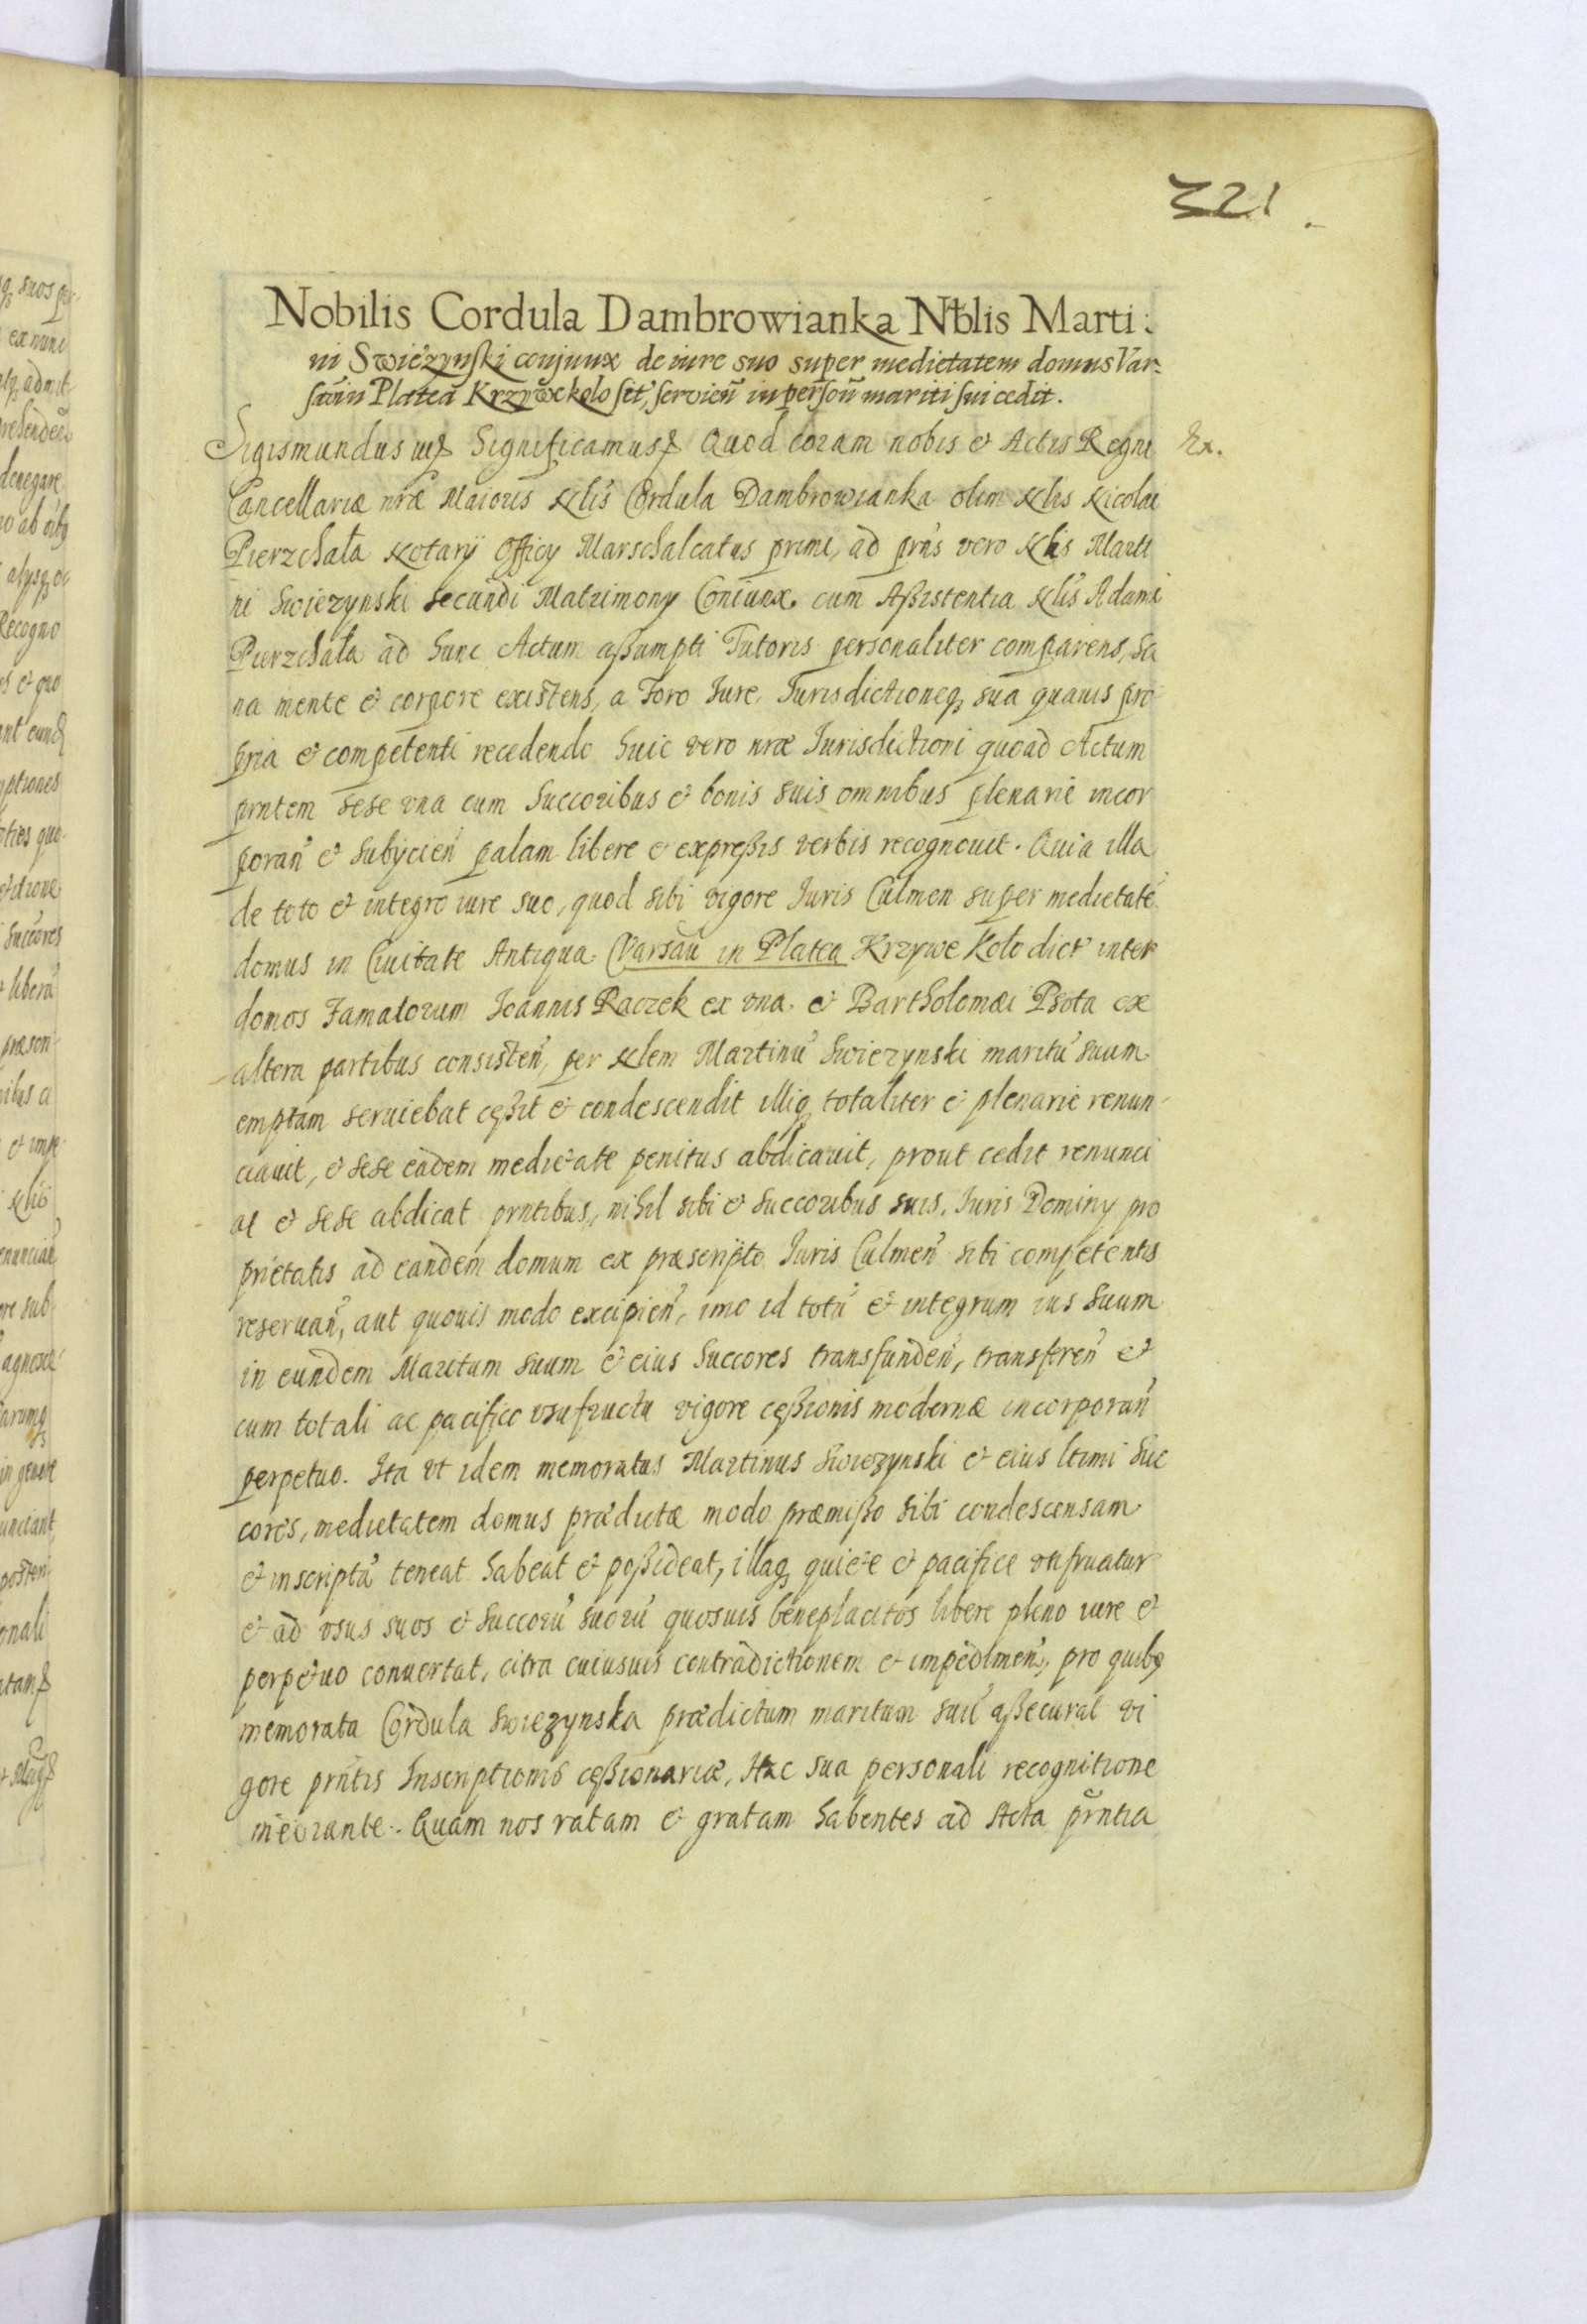 321.
Nobilis Cordula Dambrowianka Nblis Marti:
ni Swieżynski conjunx de iure suo super medietatem domus Var:
saū in Platea Krzywekolo sit, servień in persoń mariti sui cedit.
Sigismundus Significamus Quod coram nobis et Actis Regni Ex.
Cancellariæ nræ Maioris Nlis Cordula Dambrowianka olim Nlis Nicolai
Pierzchała Notarij Officÿ Marschalcatus primi, ad prns vero Nlis Marti
ni Swiezynski secundi Matrimonÿ Coniunx, cum Aßistentia Nlis Adami
Pierzchała ad hunc Actum aßumpti Tutoris personaliter comparens, sa
na mente et corpore existens, a Foro Iure, Iurisdictioneq sua quauis pro
pria et competenti recedendo huic vero nræ Iurisdictioni quoad Actum
prntem sese vna cum Succoribus et bonis suis omnibus plenarie incor
porań et subÿcień palam libere et expreßis verbis recognouit. Quia illa
de toto et integro iure suo, quod sibi vigore Iuris Culmen super medietatē
domus in Ciuitate Antiqua Varsau in Platea Krzywe Koło dict inter
domos Famatorum Ioannis Raczek ex vna et Bartholomæi Psota ex
altera partibus consisteń, per Nlem Martinū Swiezynski maritū suum
emptam seruiebat ceßit et condescendit illiq totaliter et plenarie renun-
ciauit, et sese eadem medietate penitus abdicauit, prout cedit renunci
at et sese abdicat prntibus, nihil sibi et succoribus suis, Iuris Dominÿ pro
prietatis ad eandem domum ex præscripto Iuris Culmeń sibi competentis
reseruań, aut quouis modo excipień, imo id totū et integrum ius suum
in eundem Maritum suum et eius Succores transfundeń, transfereń et
cum totali ac pacifico vsufructu vigore ceßionis modernæ incorporań
perpetuo. Ita vt idem memoratus Martinus Swiezynski et eius ltimi Suc
cores, medietatem domus prædictæ modo præmißo sibi condescensam
et inscriptā teneat habeat et poßideat, illaq quiete et pacifice vtifruatur
et ad vsus suos et Succorū suorū quosuis beneplacitos libere pleno iure et
perpetuo conuertat, citra cuiusuis contradictionem et impedimeń, pro quibq
memorata Cordula Swiezynska prædictum maritum suū aßecurat vi
gore prntis Inscriptionis ceßionariæ, Hac sua personali recognitione
mediante. Quam nos ratam et gratam habentes ad Acta prntia